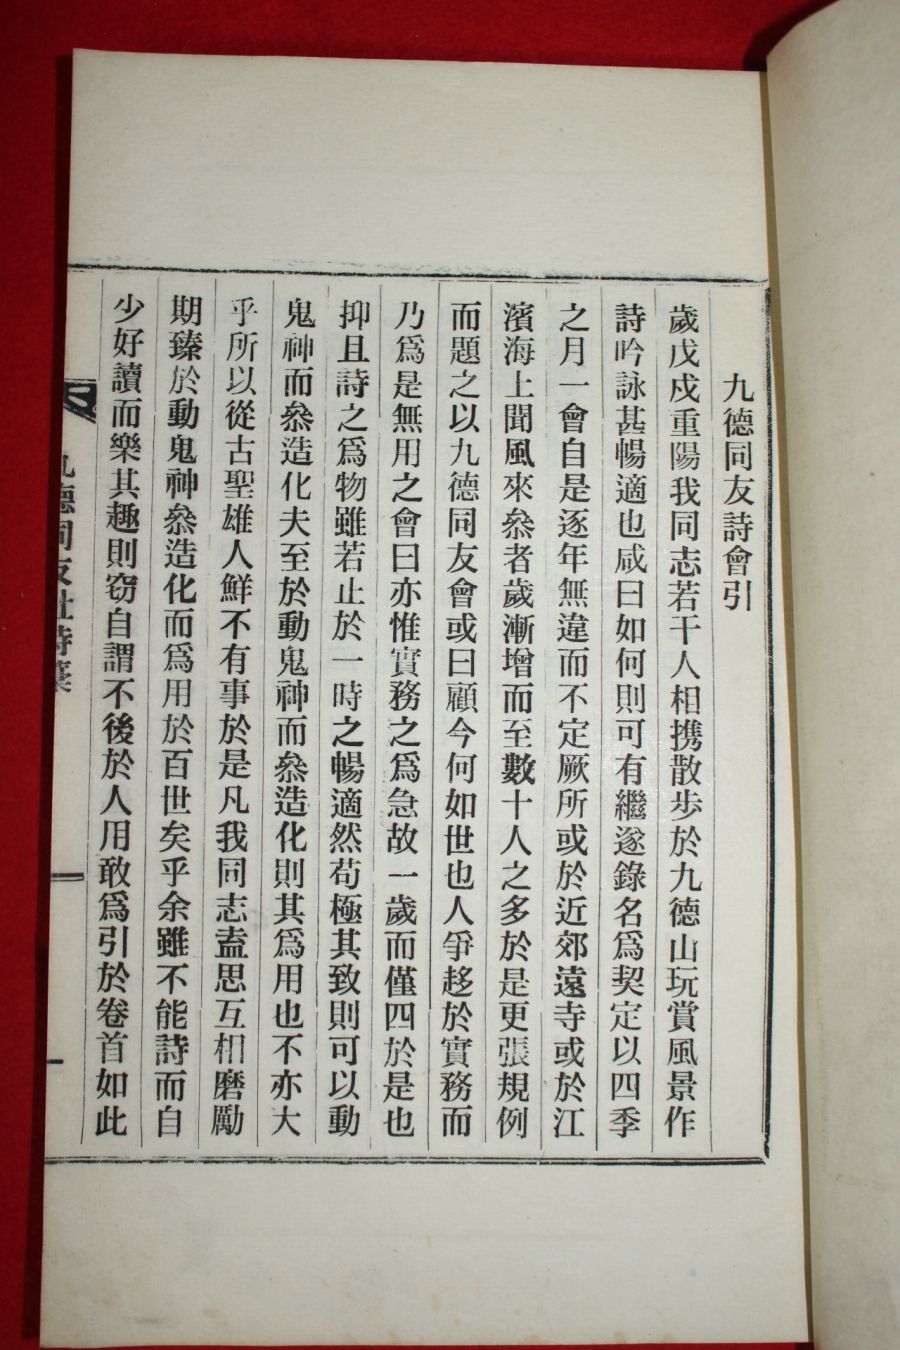 九德同友詩會引
歲戊戍重陽我同志若干人相携散步於九德山玩賞風景作
詩吟詠甚暢適也咸曰如何則可有繼遂錄名爲契定以四季
之月一會自是逐年無違而不定厥所或於近郊遠寺或於江
濱海上聞風來叅者歲漸增而至數十人之多於是更張規例
而題之以九德同友會或曰顧今何如世也人爭趍於實務而
乃爲是無用之會曰亦惟實務之爲急故一歲而僅四於是也
抑且詩之爲物雖若止於一時之暢適然苟極其致則可以動
鬼神而叅造化夫至於動鬼神而叅造化則其爲用也不亦大
乎所以從古聖雄人鮮不有事於是凡我同志盍思互相磨勵
期臻於動鬼神叅造化而爲用於百世矣乎余雖不能詩而自
少好讀而樂其趣則窃自謂不後於人用敢爲引於卷首如此
九德同友社詩稾
一